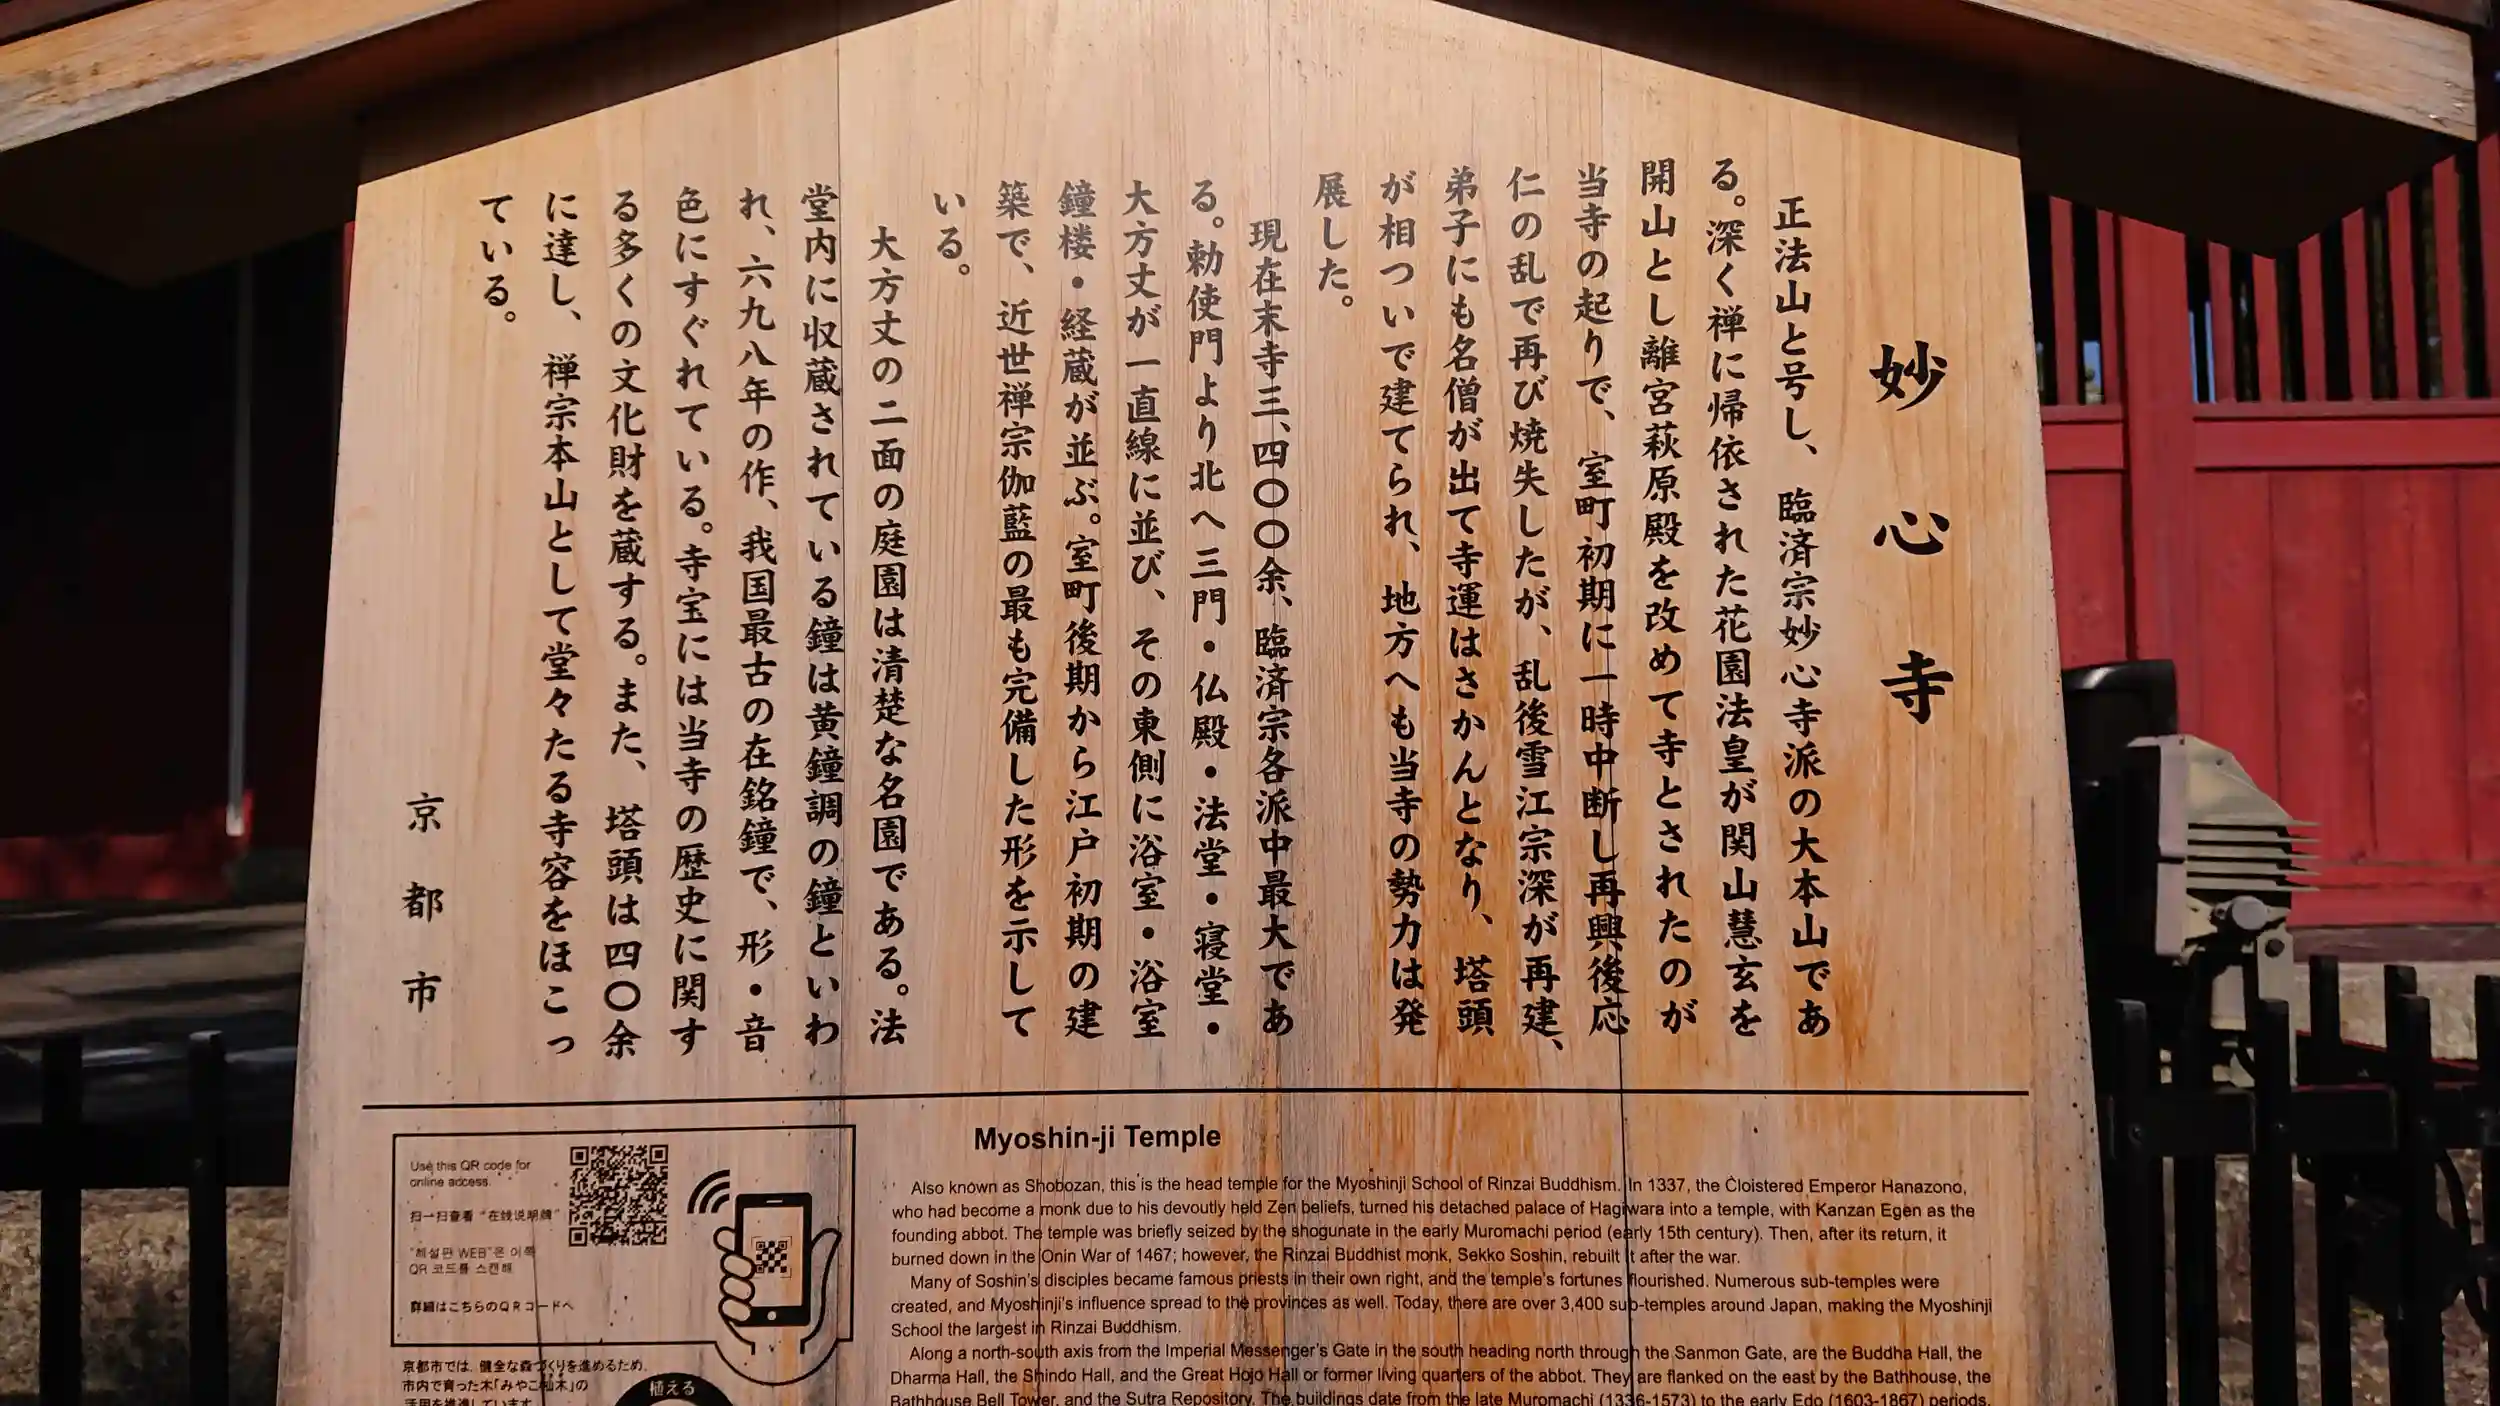 妙心寺
正法山と号し、臨済宗妙心寺派の大本山であ
る。深く禅に帰依された花園法皇が関山慧玄を
開山とし離宮萩原殿を改めて寺とされたのが
当寺の起りで、室町初期に一時中断し再興後応
仁の乱で再び焼失したが、乱後雪江宗深が再建、
弟子にも名僧が出て寺運はさかんとなり、塔頭
が相ついで建てられ、地方へも当寺の勢力は発
展した。
現在末寺三、四〇〇余、臨済宗各派中最大であ
る。勅使門より北へ三門・仏殿・法堂・寝堂・
大方丈が一直線に並び、その東側に浴室・浴室
鐘楼・経蔵が並ぶ。室町後期から江戸初期の建
築で、近世禅宗伽藍の最も完備した形を示して
いる。
大方丈の二面の庭園は清楚な名園である。法
堂内に収蔵されている鐘は黄鐘調の鐘といわ
れ、六九八年の作、我国最古の在銘鐘で、形・音
色にすぐれている。寺宝には当寺の歴史に関す
る多くの文化財を蔵する。また、塔頭は四〇余
に達し、禅宗本山として堂々たる寺容をほこっ
ている。
京都市
Use this QR code for
online access.
扫一扫查看“在线说明牌”
"해설판 WEB"은 이쪽
QR 코드를 스캔해
詳細はこちらのQRコードへ
京都市では、健全な森づくりを進めるため、
市内で育った木「みやこ杣木」の
活用を推進しています。
植える
Myoshin-ji Temple
Also known as Shobozan, this is the head temple for the Myoshinji School of Rinzai Buddhism. In 1337, the Cloistered Emperor Hanazono,
who had become a monk due to his devoutly held Zen beliefs, turned his detached palace of Hagiwara into a temple, with Kanzan Egen as the
founding abbot. The temple was briefly seized by the shogunate in the early Muromachi period (early 15th century). Then, after its return, it
burned down in the Onin War of 1467; however, the Rinzai Buddhist monk, Sekko Soshin, rebuilt it after the war.
Many of Soshin's disciples became famous priests in their own right, and the temple's fortunes flourished. Numerous sub-temples were
created, and Myoshinji's influence spread to the provinces as well. Today, there are over 3,400 sub-temples around Japan, making the Myoshinji
School the largest in Rinzai Buddhism.
Along a north-south axis from the Imperial Messenger's Gate in the south heading north through the Sanmon Gate, are the Buddha Hall, the
Dharma Hall, the Shindo Hall, and the Great Hojo Hall or former living quarters of the abbot. They are flanked on the east by the Bathhouse, the
Bathhouse Bell Tower, and the Sutra Repository. The buildings date from the late Muromachi (1336-1573) to the early Edo (1603-1867) periods,